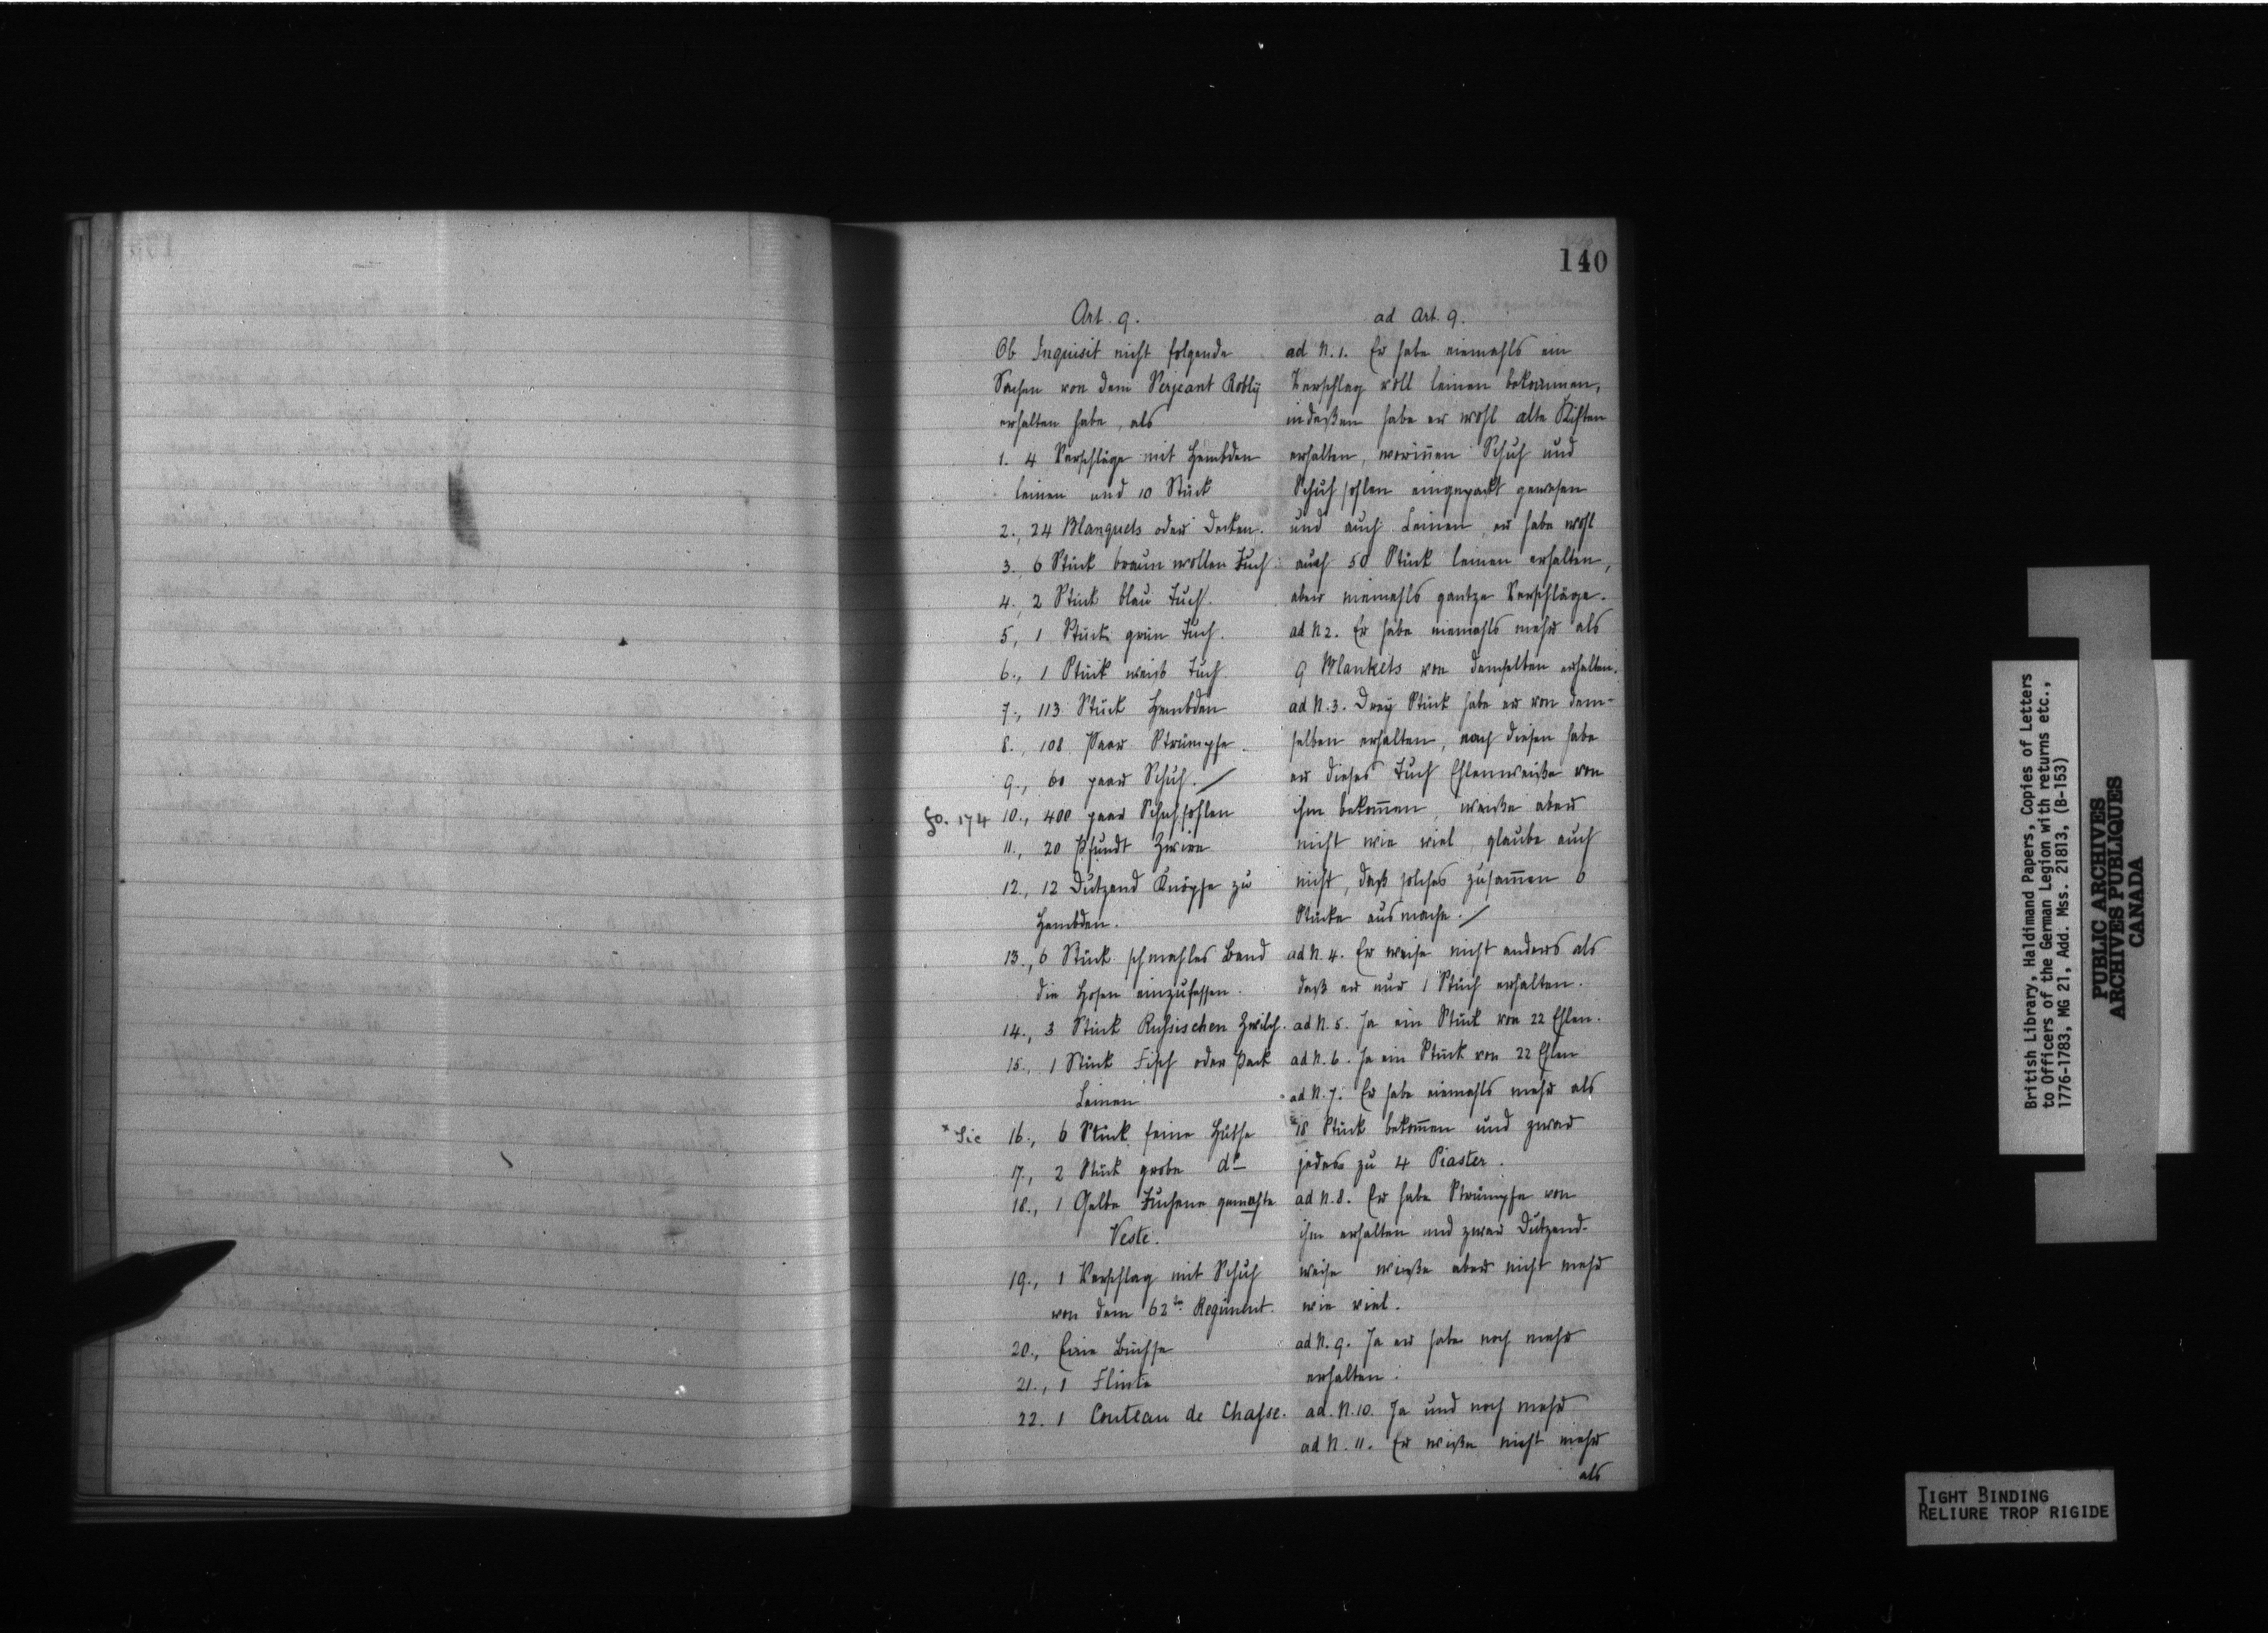 140
Art. 9.
Ob Inquisit nicht folgende
Sachen von dem Serjeant Robly
erhalten habe, als
1. 4 Verschläge mit Hembden
leinen und 10 Stück
2., 24 Blanquets oder Decken.
3., 6 Stück braun wollen Tuch
4., 2 Stück blau Tuch.
5, 1 Stück grün Tuch.
6., 1 Stück weiß Tuch
7., 113 Stück Hembden
8., 108 Paar Strümpfe.
9., 60 paar Schuh. /
fo. 174 10., 400 paar Schuhsohlen
11., 20 Pfundt Zwirn
12., 12 Dutzend Knöpfe zu
Hembden.
13., 6 Stück schmahles Band
die Hosen einzufassen.
14., 3 Stück Russischen Zwilch.
15., 1 Stück Tisch oder Pack
Leinen
* Sic 16., 6 Stück feine Huthe
17., 2 Stück grobe do
18., 1 Gelbe Tuchene gemachte
Veste.
19., 1 Verschlag mit Schuh
von dem 62ten Regiment.
20., Eine Büchse
21., 1 Flinte
22. 1 Couteau de Chasse.
ad Art. 9.
ad N. 1. Er habe niemahls ein
Verschlag voll leinen bekommen,
indeßen habe er wohl alte Kisten
erhalten, worinnen Schuh und
Schuhsohlen eingepackt gewesen
und auch Leinen, er habe wohl
auch 50 Stück leinen erhalten,
aber niemahls gantze Verschläge.
ad N 2. Er habe niemahls mehr als
9 Blankets von demselben erhalten.
ad N. 3. Drey Stück habe er von dem-
selben erhalten, nach diesen habe
er dieses Tuch Ehlenweiße von
ihm bekommen, weiße aber
nicht wie viel, glaube auch
nicht, daß solches zusammen 6
Stücke ausmache. /
ad N. 4. Er weise nicht anders als
daß er nur 1 Stück erhalten.
ad N. 5. Ja ein Stück von 22 Ehlen.
ad N. 6. Ja ein Stück von 22 Ehlen
ad N. 7. Er habe niemahls mehr als
*18 Stück bekommen und zwar
jedes zu 4 Piaster.
ad N. 8. Er habe Strümpfe von
ihm erhalten und zwar Dutzend-
weise wieße aber nicht mehr
wie viel.
ad N. 9. Ja er habe noch mehr
erhalten.
ad. N. 10. Ja und noch mehr
ad N. 11. Er wiße nicht mehr
als
British Library, Haldimand Papers, Copies of Letters
to Officers of the German Legion with returns etc.,
1776-1783, MG 21, Add. Mss. 21813, (B-153)
PUBLIC ARCHIVES
ARCHIVES PUBLIQUES
CANADA
TIGHT BINDING
RELIURE TROP RIGIDE